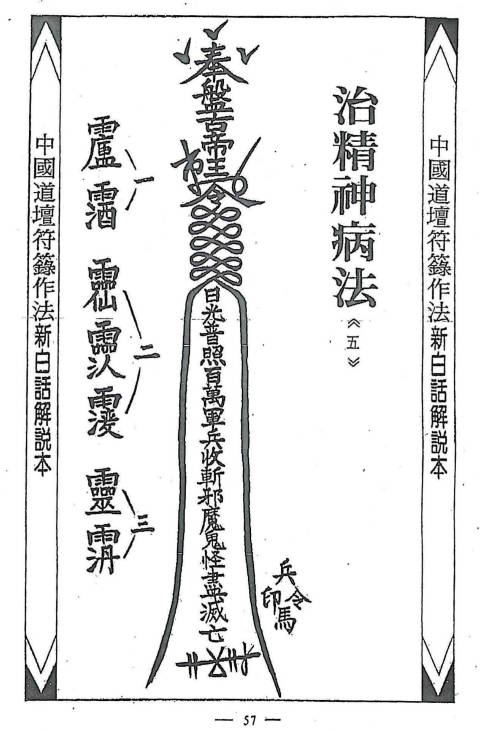 中國道壇符籙作法新白話解說本
治精神病法
《五》
奉盤古帝王令
日光普照百萬軍兵收斬邪魔鬼怪盡滅亡
兵
令
印
馬
一
二
三
靈
中國道壇符籙作法新白話解說本
— 57 —